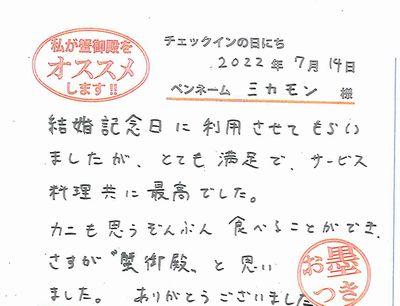 私が蟹御殿を
オススメ
します!!
チェックインの日にち
2022年7月14日
ペンネーム ミカモン 様
結婚記念日に利用させてもらい
ましたが、とても満足で、サービス
料理共に最高でした。
カニも思うぞんぶん食べることができ、
さすが〝蟹御殿〟と思い
ました。ありがとうございました
お墨
つき